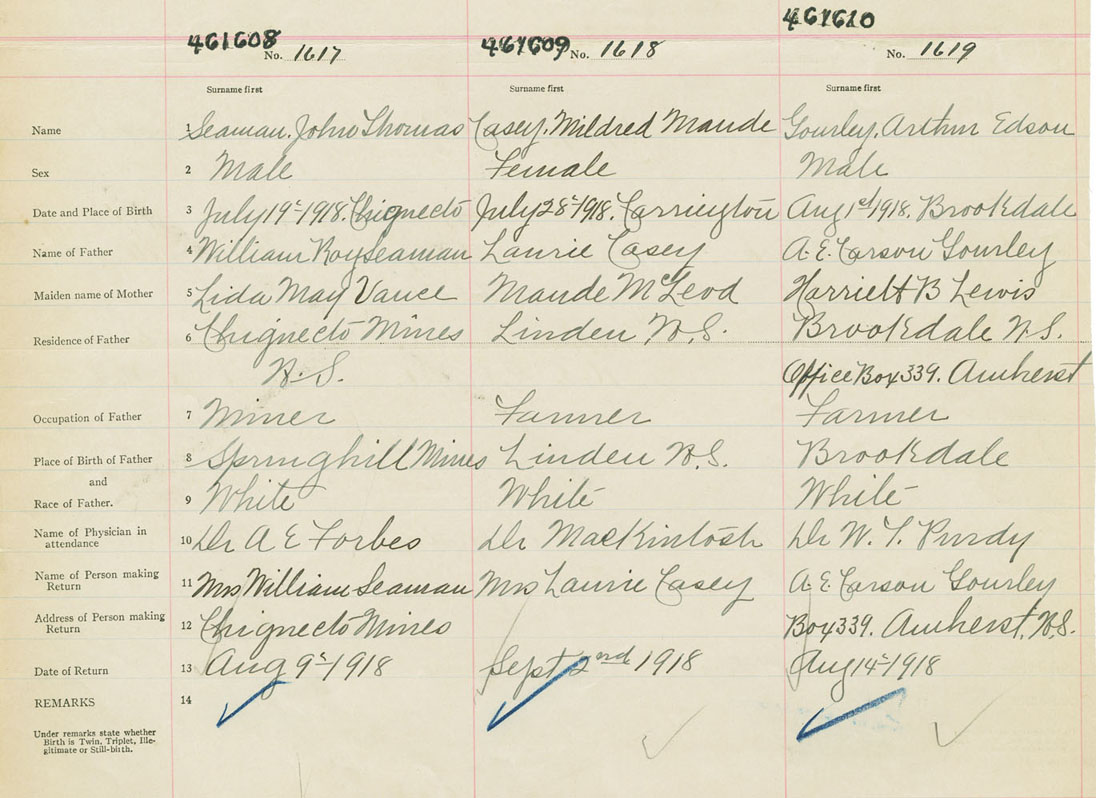 461608 461609 461610
No. 1617 No. 1618 No. 1619
Surname first Surname first Surname first
Name 1 Seaman, John Thomas Casey, Mildred Maude Gourley, Arthur Edson
Sex 2 Male Female Male
Date and Place of Birth 3 July 19th 1918. Chignecto July 28th 1918. Carrington Aug 1st 1918. Brookdale
Name of Father 4 William Roy Seaman Laurie Casey A. E. Carson Gourley
Maiden name of Mother 5 Lida May Vance Maude McLeod Harriett B Lewis
Residence of Father 6 Chignecto Mines Linden N.S. Brookdale N.S.
N.S. Office Box 339. Amherst
Occupation of Father 7 Miner Farmer Farmer
Place of Birth of Father 8 Springhill Mines Linden N.S. Brookdale
and
Race of Father. 9 White White White
Name of Physician in
attendance 10 Dr A E Forbes Dr MacKintosh Dr W. T. Purdy
Name of Person making
Return 11 Mrs William Seaman Mrs Laurie Casey A. E. Carson Gourley
Address of Person making
Return 12 Chignecto Mines Box 339. Amherst, N.S.
Date of Return 13 Aug 9th 1918 Sept 2nd 1918 Aug 14th 1918
REMARKS 14
Under remarks state whether
Birth is Twin, Triplet, Ille-
gitimate or Still-birth.